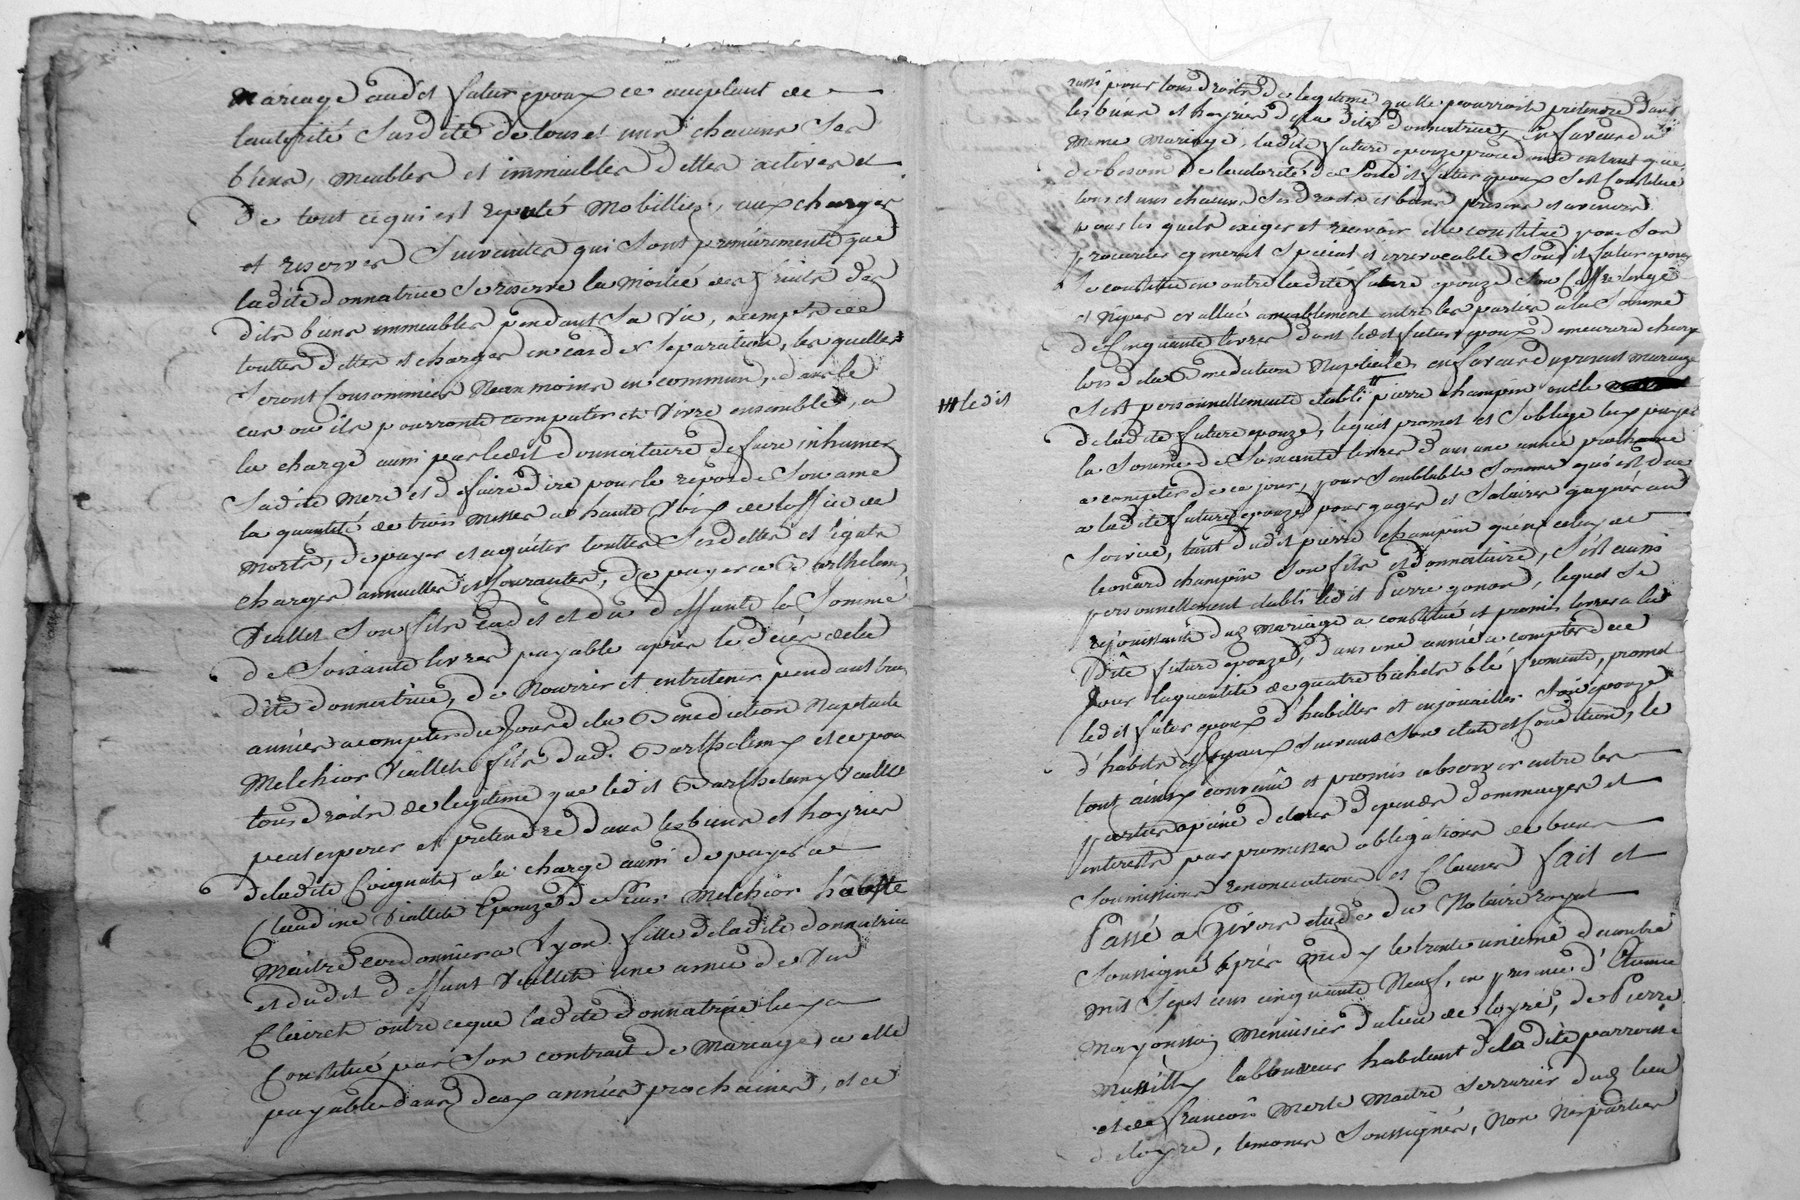 mariage audit futur epoux ce acceptant de
lautorité susdite de tous et uns chacuns ses
biens, meubles et immeubles dettes actives et
de tout ce qui est reputé mobillier, aux charges
et reserves suivantes qui sont premierement que
ladite donnatrice se reserve la moitié des fruits des
dits biens immeubles pendant sa vie, exempte de
touttes dettes et charges en cas de separation, lesquelles
seront consommées neanmoins en commun, dans le
cas ou ils pourront compatir et vivre ensemble, a
la charge aussi par ledit donnataire de faire inhumer
sadite mere et de faire dire pour le repos de son ame
la quantité de trois messes a haute voix de loffice de
morts, de payer et aquiter touttes ses dettes et legats
charges annuelles et courantes, de payer a Barthelemy
Viallet son fils cadet et du deffunt la somme
de soixante livres payable après le décès de la
dite donnatrice, de nourrir et entretenir pendant trois
années a compter du jour de la Benediction nuptiale
Melchior Viallet fils dud. Barthelemy et ce pour
tous droits de legitime que ledit Barthelemy Viallet
peut esperer et pretendre dans les biens et hoyries
de ladite Coignat, a la charge aussi de payer a
Claudine Viallet Epouze de Sieur Melchior
Maitre cordonnier a Lyon fille de ladite donnatrice
et dudit deffunt Viallet une année de vin
Clairet outre ce que ladite donnatrice luy a
Constitué par son contrat de mariage a elle
payable dans deux années prochaines, et ce
aussi pour tous droits de legitime quelle pourroit pretendre dans
les biens et hoyries de la dite donnatrice, En faveur du
meme mariage, ladite future epouze procedante en tant que
de besoin de lautorité de sondit futur epoux s'est constitué
tous et uns chacuns ses droits et biens presens et avenirs
pour lesquels exiger et recevoir elle constitue pour son
procureur general special et irrevocable sondit futur epoux
Se constitue en outre ladite future epouze son coffre linge
et nipes evallué amiablement entre les parties a la somme
de cinquante livres dont ledit futur epoux demeurera chargé
lors de la Benediction nuptiale, en faveur du present mariage
s'est personnellement etabli # pierre champin oncle
# ledit
de ladite future epouze, lequel promet et soblige luy payer
la somme de soixante livres dans une année prochaine
a compter de ce jour, pour semblable somme qui est due
a ladite future epouze pour gages et salaires gagnés au
service, tant dudit pierre champin qu'en celuy de
leonard champin son fils et donnataire, s'est aussi
personnellement etabli ledit Pierre gonon, lequel se
rejouissant dud. mariage a constitué et promis livrer a la
dite future epouze, dans une année a compter de ce
jour la quantité de quatre bichets blé froment, promet
ledit futur epoux d'habiller et enjoailler son epouze
d'habits et joyaux suivant son etat et condition, le
tout ainsy convenu et promis observer entre les
parties a peine de tous depends dommages et
interests par promesses obligations de biens
soumissions renonciations et clauses fait et
Passé a Givors etude du Notaire royal
soussigné après midy le trente unieme decembre
mil sept cens cinquante neuf, en presence d'Etienne
menuisier du lieu de loyre, de Pierre
laboureur habitant de la dite parroisse
et de françois merle maitre serrurier dud. lieu
de loyre, temoins soussignés, non les parties